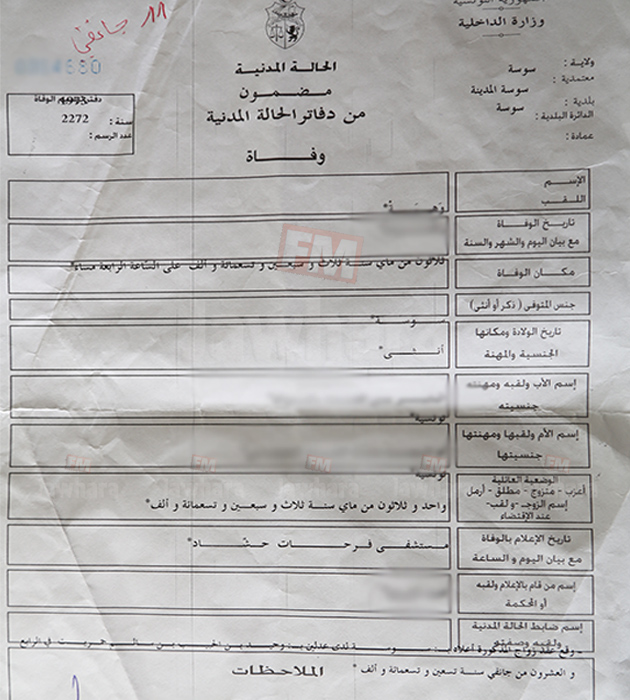 الجمهورية التونسية
وزارة الداخلية
11 جانفي
ولاية : سوسة
معتمدية : سوسة المدينة
بلدية : سوسة
الدائرة البلدية :
عمادة :
الحالة المدنية
مضمون
من دفاتر الحالة المدنية
وفاة
سنة : 2272
عدد الرسم :
الإسم
اللقب
وهيبة*
تاريخ الوفاة
مع بيان اليوم والشهر والسنة
ثلاثون من ماي سنة ثلاث و سبعين و تسعمائة و ألف على الساعة الرابعة مساء*
مكان الوفاة
جنس المتوفى ( ذكر أو أنثى)
سوسة*
تاريخ الولادة ومكانها
الجنسية والمهنة
أنثى*
إسم الأب ولقبه ومهنته
جنسيته
تونسية*
إسم الأم ولقبها ومهنتها
جنسيتها
تونسية*
الوضعية العائلية
أعزب - متزوج - مطلق - أرمل
إسم الزوج - ولقب-
عند الإقتضاء
واحد و ثلاثون من ماي سنة ثلاث و سبعين و تسعمائة و ألف*
تاريخ الإعلام بالوفاة
مع بيان اليوم و الساعة
مستشفى فرحات حشاد*
إسم من قام بالإعلام ولقبه
أو المحكمة
إسم ضابط الحالة المدنية
ولقبه وصفته
- وقع عقد زواج المذكورة أعلاه ب: سوسة لدى عدلين ب: وحيد بن الحبيب بن سالم في الرابع
و العشرون من جانفي سنة تسعين و تسعمائة و ألف *
الملاحظات